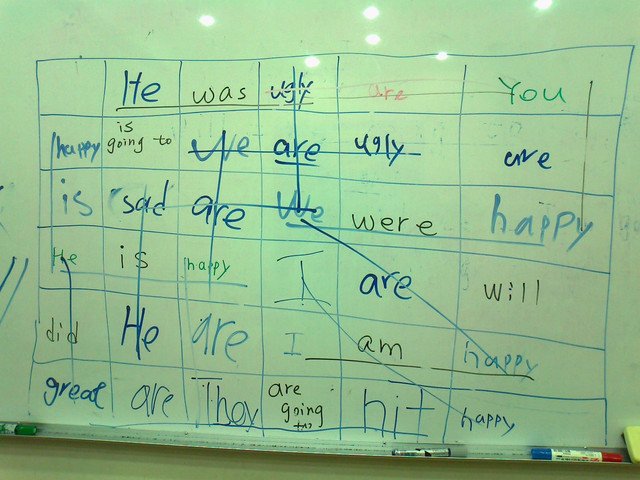 He was ugly are You
happy is going to We are ugly are
is sad are We were happy
He is happy I are will
did He are I am happy
great are They are going to hit happy